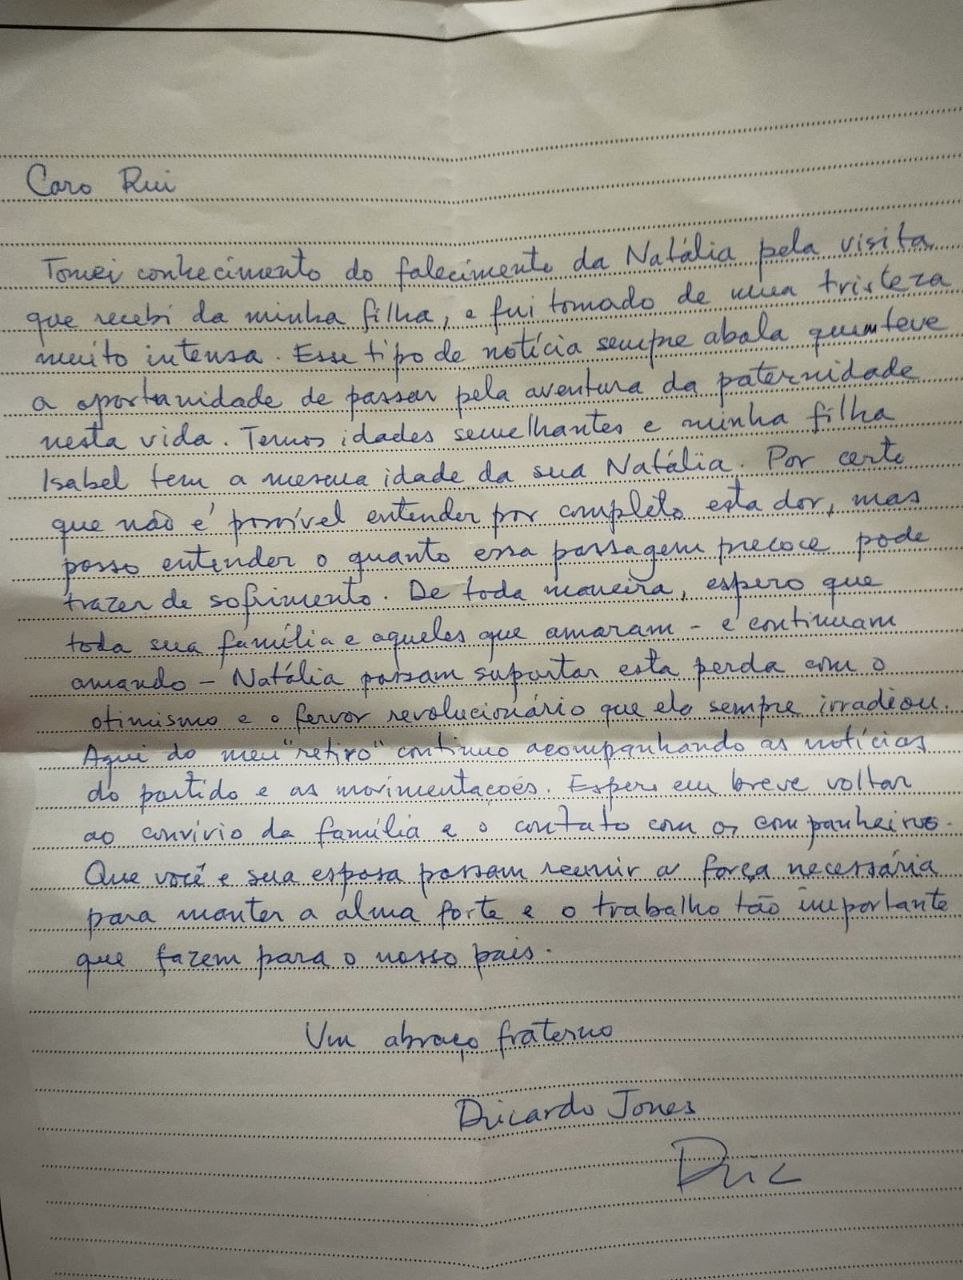 Caro Rui
Tomei conhecimento do falecimento da Natália pela visita
que recebi da minha filha, e fui tomado de uma tristeza
muito intensa. Esse tipo de notícia sempre abala quem teve
a oportunidade de passar pela aventura da paternidade
nesta vida. Temos idades semelhantes e minha filha
Isabel tem a mesma idade da sua Natália. Por certo
que não é possível entender por completo esta dor, mas
posso entender o quanto essa passagem precoce pode
trazer de sofrimento. De toda maneira, espero que
toda sua família e aqueles que amaram - e continuam
amando - Natália possam suportar esta perda com o
otimismo e o fervor revolucionário que ela sempre irradiou.
Aqui do meu "retiro" continuo acompanhando as notícias
do partido e as movimentações. Espero em breve voltar
ao convívio da família e o contato com os companheiros.
Que você e sua esposa possam reunir a força necessária
para manter a alma forte e o trabalho tão importante
que fazem para o nosso país.
Um abraço fraterno
Ricardo Jones
Ric